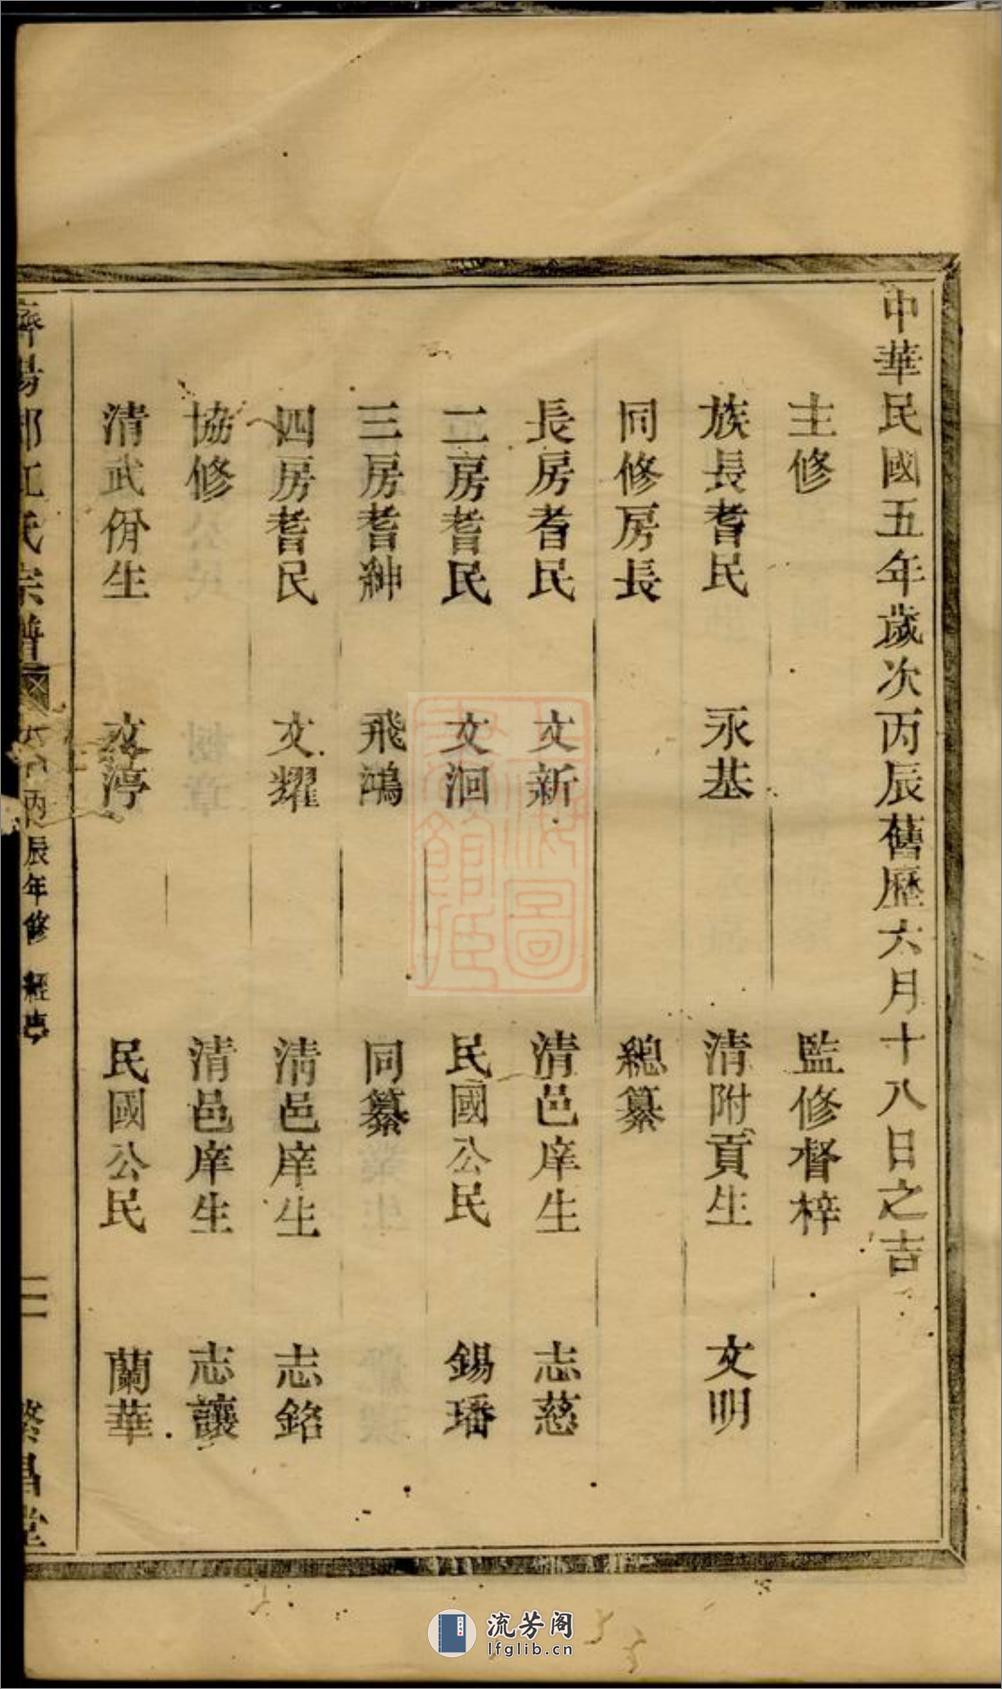 中華民國五年歲次丙辰舊歷六月十八日之吉
主修
監修督梓
族長耆民 永基
清附貢生 文明
同修房長
總纂
長房耆民 文新
清邑庠生 志慈
二房耆民 文洄
民國公民 錫璠
三房耆紳 飛鴻
同纂
四房耆民 文耀
清邑庠生 志銘
協修
清邑庠生 志讓
清武佾生 文渟
民國公民 蘭華
濟陽郡江氏宗譜 丙辰年修 經事 二 繁昌堂
上海圖書館藏
流芳阁
lfglib.cn